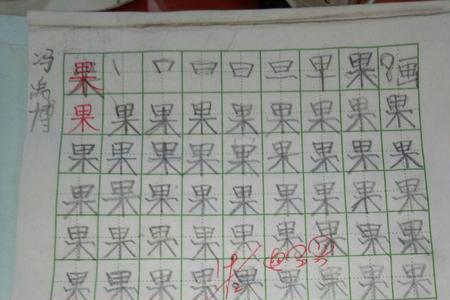 冯禹博
果 丨 口 日 日 旦 甲 果 8画
果 果 果 果 果 果 果 果 果
果 果 果 果 果 果 果 果 果
果 果 果 果 果 果 果 果 果
果 果 果 果 果 果 果 果 果
果 果 果 果 果 果 果 果 果